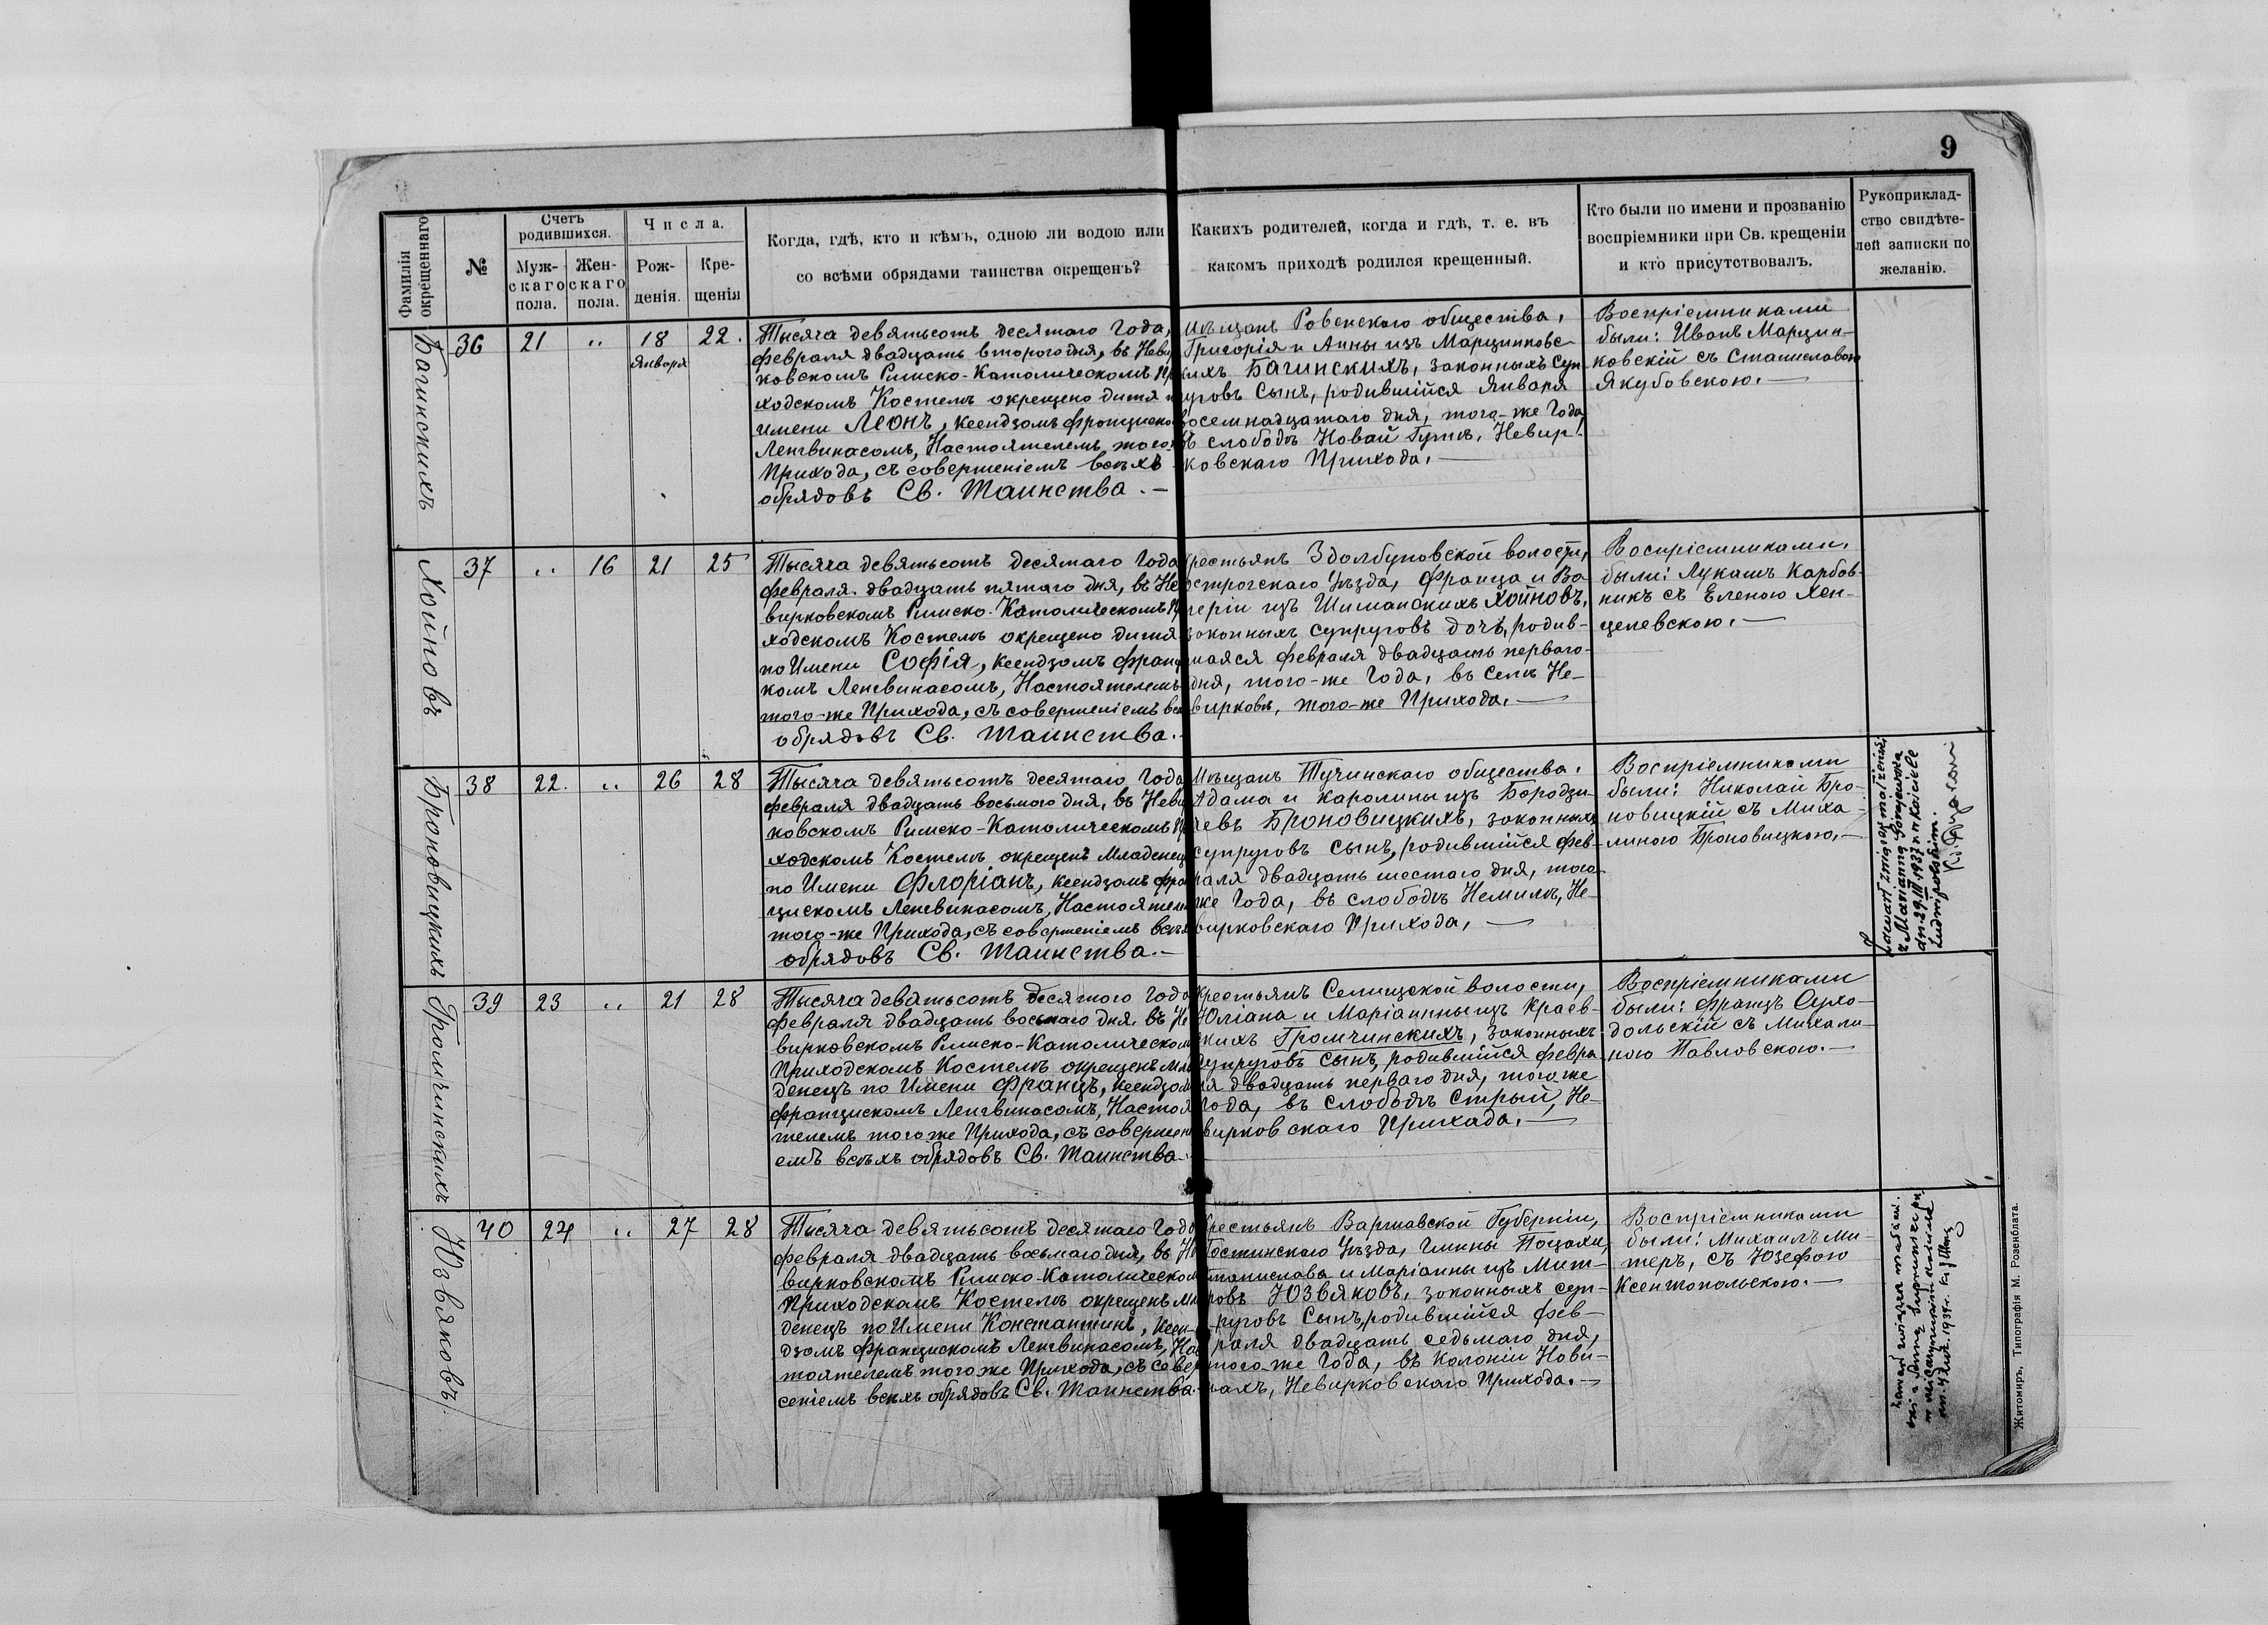 9
Фамилія окрещеннаго
№
Счетъ родившихся.
Муж-скаго пола.
Жен-скаго пола.
Числа.
Рож-денія.
Кре-щенія
Когда, гдѣ, кто и кѣмъ, одною ли водою или
со всѣми обрядами таинства окрещенъ?
Какихъ родителей, когда и гдѣ, т. е. въ
какомъ приходѣ родился крещенный.
Кто были по имени и прозванію
воспріемники при Св. крещеніи
и кто присутствовалъ.
Рукоприклад-
ство свидѣте-
лей записки по
желанію.
Багинскихъ
36 21 „ 18 Января 22.
Тысяча девятьсотъ десятаго Года,
февраля двадцать второго дня, въ Неви
ковскомъ Римско-Католическомъ Пр
ходскомъ Костелѣ окрещено дитя п
имени Леонъ, ксендзомъ Францискo
Ленгвинасомъ, Настоятелемъ того
Прихода, съ совершеніемъ всѣхъ
обрядовъ Св. Таинства.—
мѣщанъ Ровенскаго общества,
Григорія и Анны изъ Марцинковс-
кихъ Багинскихъ, законныхъ суп-
уговъ Сынъ, родившійся Января
восемнадцатаго дня, того-же Года,
въ слободѣ Новой Гутѣ, Невир-
ковскаго Прихода.—
Воспріемниками
были: Иванъ Марцин-
ковскій съ Станиславою
Якубовскою.—
Хойновъ
37 „ 16 21 25
Тысяча девятьсотъ десятаго Года
февраля двадцать пятаго дня, въ Не
вирковскомъ Римско-Католическомъ Пр
ходскомъ Костелѣ окрещено дитя
по Имени Софія, ксендзомъ Франц
комъ Ленгвинасомъ, Настоятелемъ
того-же Прихода, съ совершеніемъ всѣ
обрядовъ Св. Таинства.
крестьянъ Здолбуновской волости,
острогскаго Уѣзда, Франца и Ва-
леріи изъ Шиманскихъ Хойновъ,
законныхъ супруговъ дочь, родив-
шаяся февраля двадцать перваго
дня, того-же Года, въ Селѣ Не-
вирковѣ, того-же Прихода.—
Воспріемниками,
были: Лукашъ Карбов-
никъ съ Еленою Хен-
целевскою.—
Броновицкихъ
38 22. „ 26 28
Тысяча девятьсотъ десятаго Года
февраля двадцать восьмого дня, въ Неви
ковскомъ Римско-Католическомъ Пр
ходскомъ Костелѣ окрещенъ Младенец
по Имени Флоріанъ, ксендзомъ Фра
цискомъ Ленгвинасомъ, Настоятел
того-же Прихода, съ совершеніемъ всѣх
обрядовъ Св. Таинства.—
Мѣщанъ Тучинскаго общества,
Адама и Каролины изъ Бородзи-
чевъ Броновицкихъ, законныхъ
супруговъ сынъ, родившійся фев-
раля двадцать шестаго дня, того
же Года, въ слободѣ Немилѣ, Не-
вирковскаго Прихода,—
Воспріемниками
были: Николай Бро-
новицкій съ Миха-
линою Броновицкою.—
Zawarł związek małżeński
z Marianną
dn. 29.III.1937 r. w Kościele
Ludwipolskim.
Громчинскихъ
39 23 „ 21 28
Тысяча девятьсотъ десятого Года
февраля двадцать восьмаго дня, въ Не
вирковскомъ Римско-Католическом
Приходскомъ Костелѣ окрещенъ мла
денецъ по Имени Францъ, ксендзом
Францискомъ Ленгвинасомъ, Настоя
телемъ того же Прихода, съ совершені
емъ всѣхъ обрядовъ Св. Таинства.
Крестьянъ Селищской волости,
Юліана и Маріанны изъ Краев-
скихъ Громчинскихъ, законныхъ
супруговъ сынъ, родившійся февра
ля двадцать перваго дня, того же
Года, въ слободѣ Стрый, Не-
вирковскаго Прихода.—
Воспріемниками
были: Францъ Сухо-
дольскій съ Михали-
ною Павловскою.—
Юзвяковъ.
40 24 „ 27 28
Тысяча девятьсотъ десятаго Года
февраля двадцать восьмаго дня, въ Не
вирковскомъ Римско-Католическом
Приходскомъ Костелѣ окрещенъ мла
денецъ по Имени Константинъ, ксен-
дзомъ Францискомъ Ленгвинасомъ, Нас
тоятелемъ того же Прихода, съ совер
сеніемъ всѣхъ обрядовъ Св. Таинства.
Крестьянъ Варшавской Губерніи,
Гостинскаго Уѣзда, Гмины
Станислава и Маріанны изъ Мит-
ровъ Юзвяковъ, законныхъ суп-
руговъ Сынъ, родившійся фев-
раля двадцать седьмаго дня,
того-же Года, въ Колоніи Нови-
нахъ, Невирковскаго Прихода.—
Воспріемниками
были: Михаилъ Ми-
теръ, съ Юзефою
Ксентопольскою.—
Zawarł związek małżeń
Житомиръ, Типографія М. Розенблата.